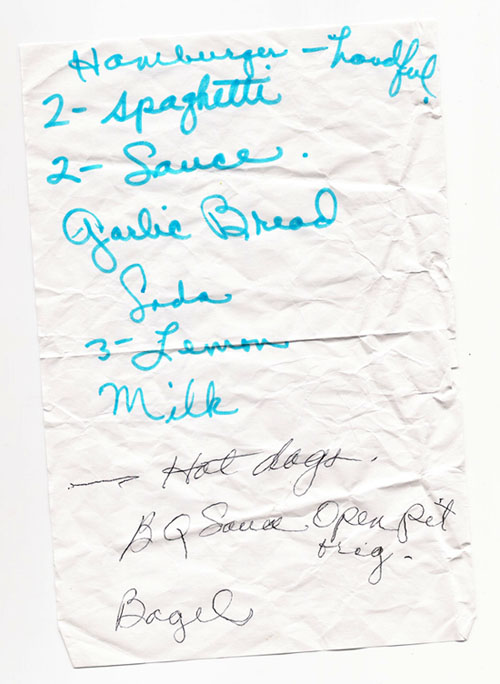 Hamburger - handful.
2- Spaghetti
2- Sauce.
Garlic Bread
Soda
3- Lemon
Milk
— Hot dogs.
BQ Sauce Open pit
orig.
Bagel